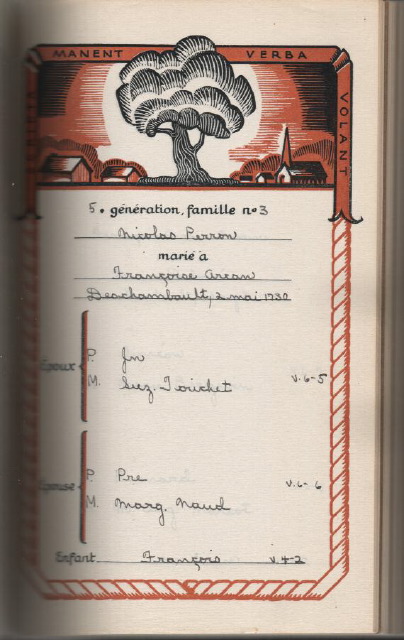 MANENT VERBA
VOLANT
5e génération, famille no 3
Nicolas Perron
marié à
Françoise Arcan
Deschambault, 2 mai 1732
Époux
P. Jn
M. Suz. Tourichet v.6-5
Épouse
P. Pre v.6-6
M. Marg. Naud
Enfant François v.4-2